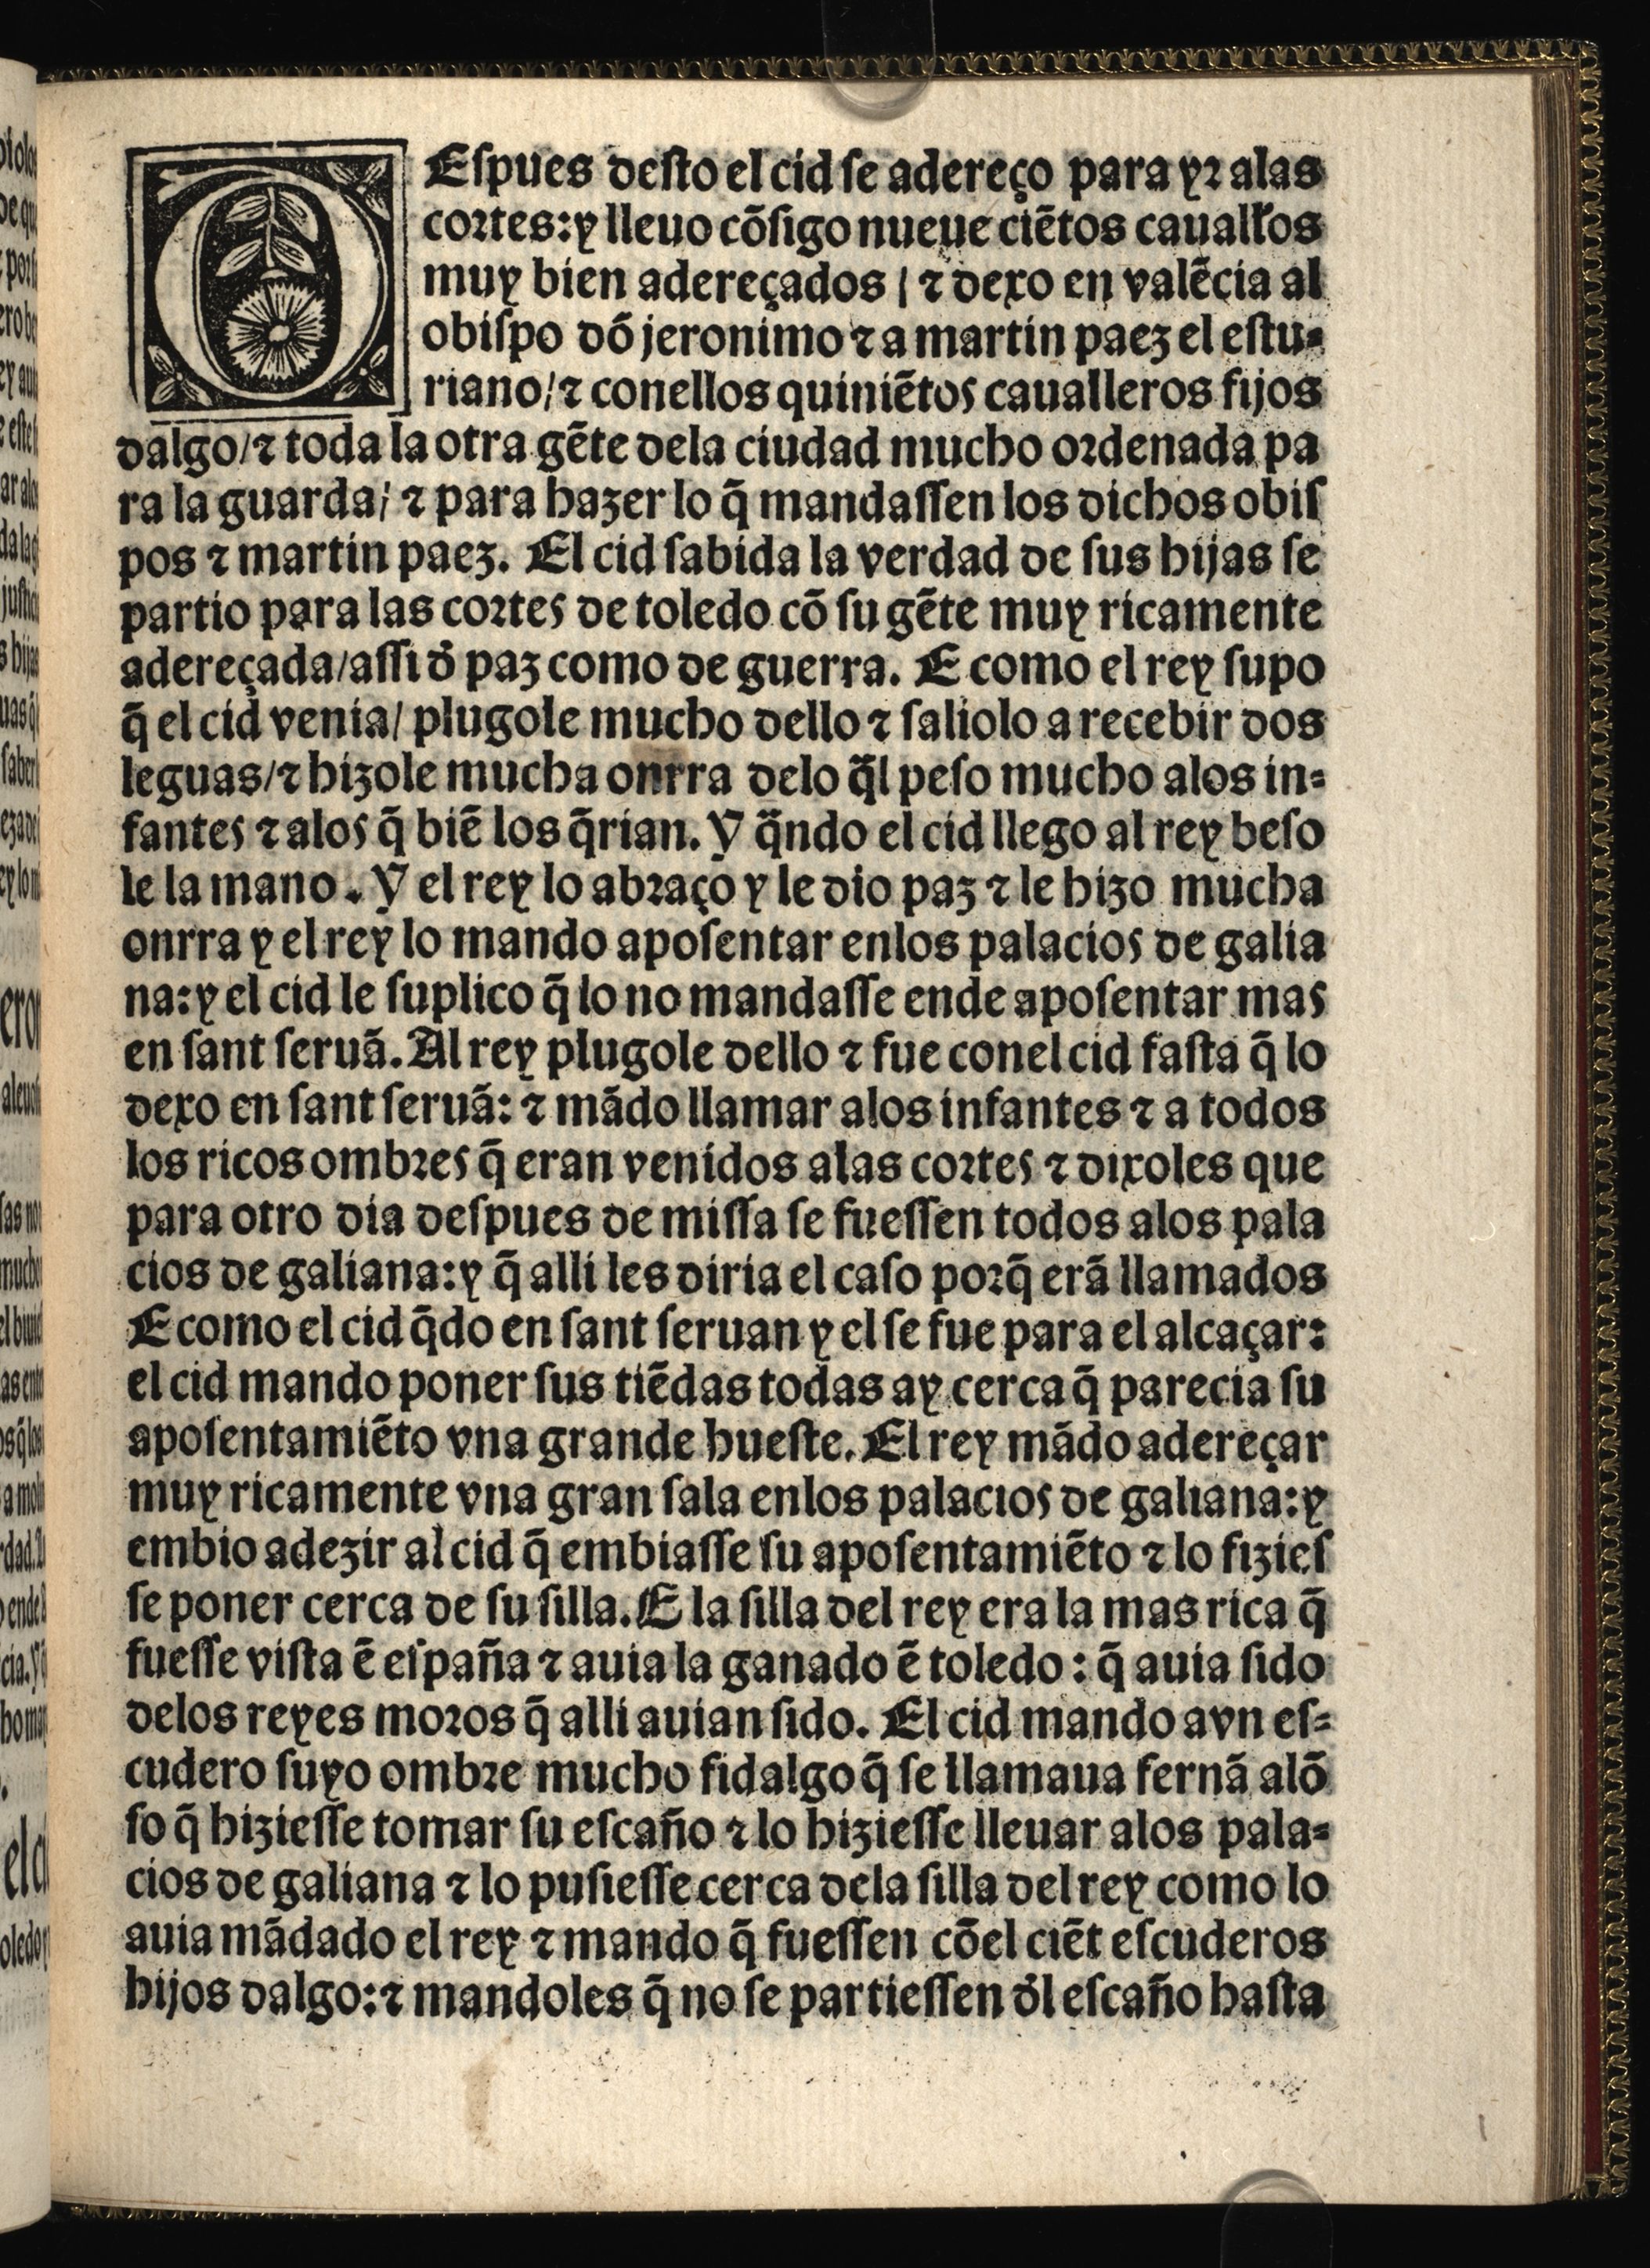 DEſpues deſto el cid ſe adereço para yꝛ alas
coꝛtes: y lleuo cõſigo nueue ciẽtos cauallɼos
muy bien adereçados / ⁊ dexo en valẽcia al
obiſpo dõ jeronimo ⁊ a martin paez el eſtu-
riano/ ⁊ conellos quiniẽtos caualleros fijos
dalgo/ ⁊ toda la otra gẽte dela ciudad mucho oꝛdenada pa
ra la guarda/ ⁊ para hazer lo q̃ mandaſſen los dichos obiſ
pos ⁊ martin paez. El cid ſabida la verdad de ſus hijas ſe
partio para las coꝛtes de toledo cõ ſu gẽte muy ricamente
adereçada/ aſſi d̓ paz como de guerra. E como el rey ſupo
q̃ el cid venia/ plugole mucho dello ⁊ ſaliolo a recebir dos
leguas/ ⁊ hizole mucha onrra delo q̃l peſo mucho alos in-
fantes ⁊ alos q̃ biẽ los q̃rian. Y q̃ndo el cid llego al rey beſo
le la mano. Y el rey lo abꝛaço y le dio paz ⁊ le hizo mucha
onrra y el rey lo mando apoſentar enlos palacios de galia
na: y el cid le ſuplico q̃ lo no mandaſſe ende apoſentar mas
en ſant ſeruã. Al rey plugole dello ⁊ fue conel cid faſta q̃ lo
dexo en ſant ſeruã: ⁊ mãdo llamar alos infantes ⁊ a todos
los ricos ombꝛes q̃ eran venidos alas coꝛtes ⁊ dixoles que
para otro dia deſpues de miſſa ſe fueſſen todos alos pala
cios de galiana: y q̃ alli les diria el caſo poꝛq̃ erã llamados
E como el cid q̃do en ſant ſeruan y el ſe fue para el alcaçar:
el cid mando poner ſus tiẽdas todas ay cerca q̃ parecia ſu
apoſentamiẽto vna grande hueſte. El rey mãdo adereçar
muy ricamente vna gran ſala enlos palacios de galiana: y
embio adezir al cid q̃ embiaſſe ſu apoſentamiẽto ⁊ lo fizieſ
ſe poner cerca de ſu ſilla. E la ſilla del rey era la mas rica q̃
fueſſe viſta ẽ eſpaña ⁊ auia la ganado ẽ toledo: q̃ auia ſido
delos reyes moꝛos q̃ alli auian ſido. El cid mando avn eſ-
cudero ſuyo ombꝛe mucho fidalgo q̃ ſe llamaua fernã alõ
ſo q̃ hizieſſe tomar ſu eſcaño ⁊ lo hizieſſe lleuar alos pala-
cios de galiana ⁊ lo puſieſſe cerca dela ſilla del rey como lo
auia mãdado el rey ⁊ mando q̃ fueſſen cõel ciẽt eſcuderos
hijos dalgo: ⁊ mandoles q̃ no ſe partieſſen d̓l eſcaño haſta